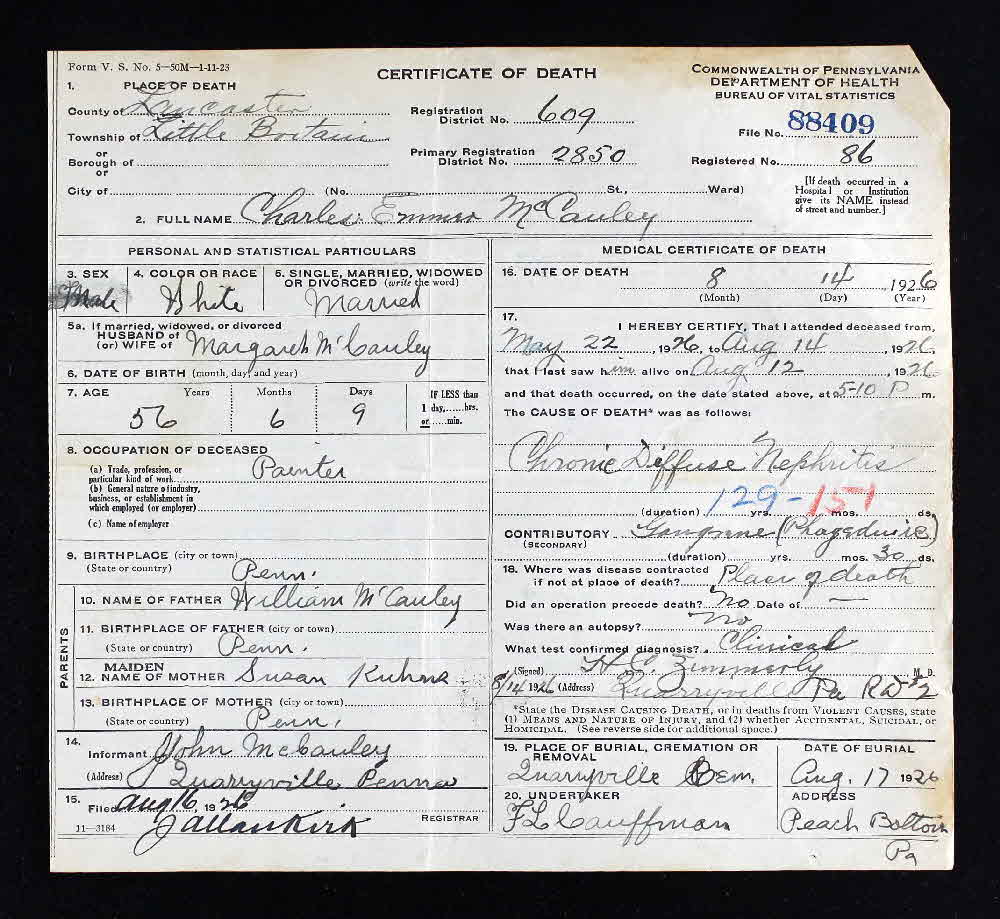 Form V. S. No. 5—50M—1-11-23
CERTIFICATE OF DEATH
COMMONWEALTH OF PENNSYLVANIA
DEPARTMENT OF HEALTH
BUREAU OF VITAL STATISTICS
1. PLACE OF DEATH
County of Lancaster
Township of Little Britain
or
Borough of
or
City of (No. St., Ward)
Registration District No. 609
Primary Registration District No. 2850
File No. 88409
Registered No. 86
[If death occurred in a
Hospital or Institution
give its NAME instead
of street and number.]
2. FULL NAME Charles Emmer McCauley
PERSONAL AND STATISTICAL PARTICULARS
3. SEX
Male
4. COLOR OR RACE
White
5. SINGLE, MARRIED, WIDOWED
OR DIVORCED (write the word)
Married
5a. If married, widowed, or divorced
HUSBAND of
(or) WIFE of Margaret McCauley
6. DATE OF BIRTH (month, day, and year)
7. AGE Years Months Days
56 6 9
IF LESS than
1 day,......hrs.
or......min.
8. OCCUPATION OF DECEASED
(a) Trade, profession, or
particular kind of work Painter
(b) General nature of industry,
business, or establishment in
which employed (or employer)
(c) Name of employer
9. BIRTHPLACE (city or town)
(State or country) Penn.
PARENTS
10. NAME OF FATHER William McCauley
11. BIRTHPLACE OF FATHER (city or town)
(State or country) Penn.
12. MAIDEN NAME OF MOTHER Susan Kuhns
13. BIRTHPLACE OF MOTHER (city or town)
(State or country) Penn.
14.
Informant John McCauley
(Address) Quarryville Penna
15.
Filed Aug 16, 1926
J Allan Kirk
REGISTRAR
11—3184
MEDICAL CERTIFICATE OF DEATH
16. DATE OF DEATH 8 14, 1926
(Month) (Day) (Year)
17.
I HEREBY CERTIFY, That I attended deceased from,
May 22, 1926, to Aug 14, 1926,
that I last saw him alive on Aug 12, 1926
and that death occurred, on the date stated above, at 5-10 P m.
The CAUSE OF DEATH* was as follows:
Chronic Diffuse Nephritis
129-151
(duration) yrs. mos. ds.
CONTRIBUTORY Gangrene (Phagedenic)
(SECONDARY)
(duration) yrs. mos. 30 ds.
18. Where was disease contracted
if not at place of death? Place of death
Did an operation precede death? No Date of —
Was there an autopsy? No
What test confirmed diagnosis? Clinical
(Signed) H. C. Zimmerly M. D.
8/14 1926 (Address) Quarryville Pa R D #2
*State the DISEASE CAUSING DEATH, or in deaths from VIOLENT CAUSES, state
(1) MEANS AND NATURE OF INJURY, and (2) whether ACCIDENTAL, SUICIDAL, or
HOMICIDAL. (See reverse side for additional space.)
19. PLACE OF BURIAL, CREMATION OR
REMOVAL
Quarryville Cem.
DATE OF BURIAL
Aug. 17 1926
20. UNDERTAKER
F L Cauffman
ADDRESS
Peach Bottom
Pa